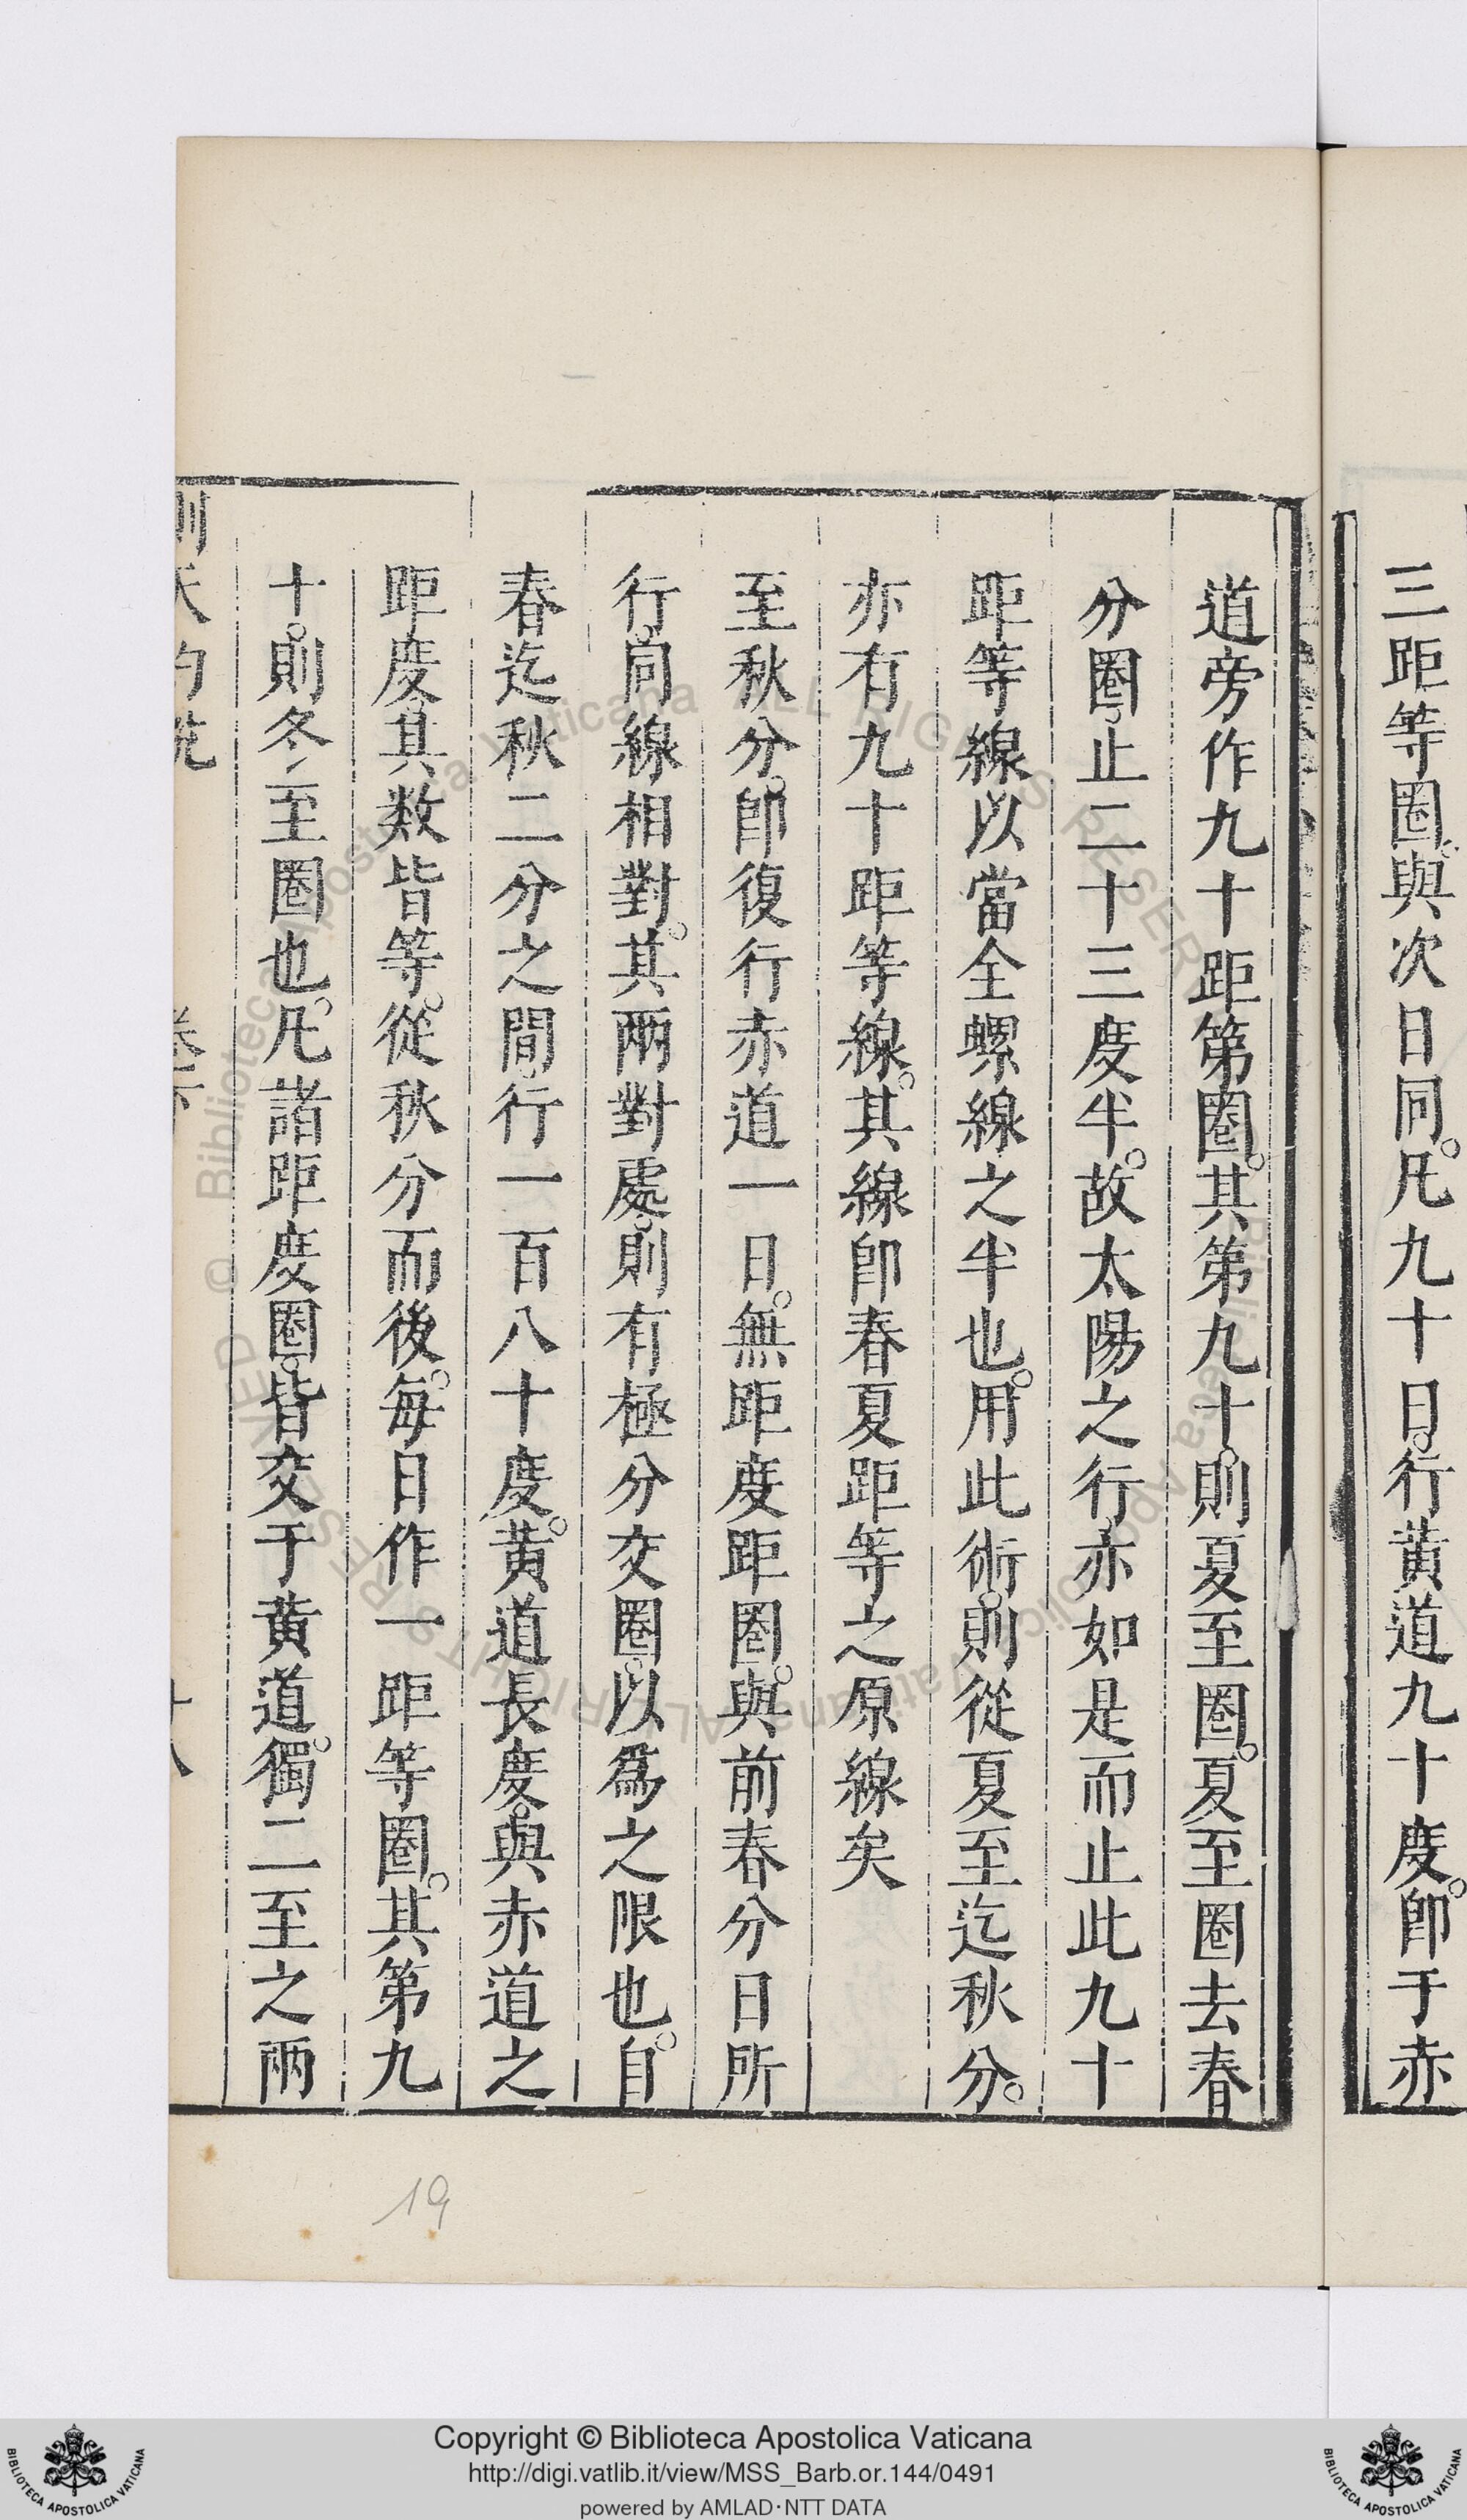 三距等圈與次日同凡九十日行黃道九十度卽于赤
道旁作九十距第圈其第九十則夏至圈夏至圈去春
分圈止二十三度半故太陽之行亦如是而止此九十
距等線以當全螺線之半也用此術則從夏至迄秋分
亦有九十距等線其線卽春夏距等之原線矣
至秋分卽復行赤道一日無距度距圈與前春分日所
行同線相對其兩對處則有極分交圈以爲之限也自
春迄秋二分之間行一百八十度黃道長度與赤道之
距度其数皆等從秋分而後每日作一距等圈其第九
十則冬至圈也凡諸距度圈皆交于黃道獨二至之兩
測天約說 卷下 十八
19
Copyright © Biblioteca Apostolica Vaticana
http://digi.vatlib.it/view/MSS_Barb.or.144/0491
powered by AMLAD·NTT DATA